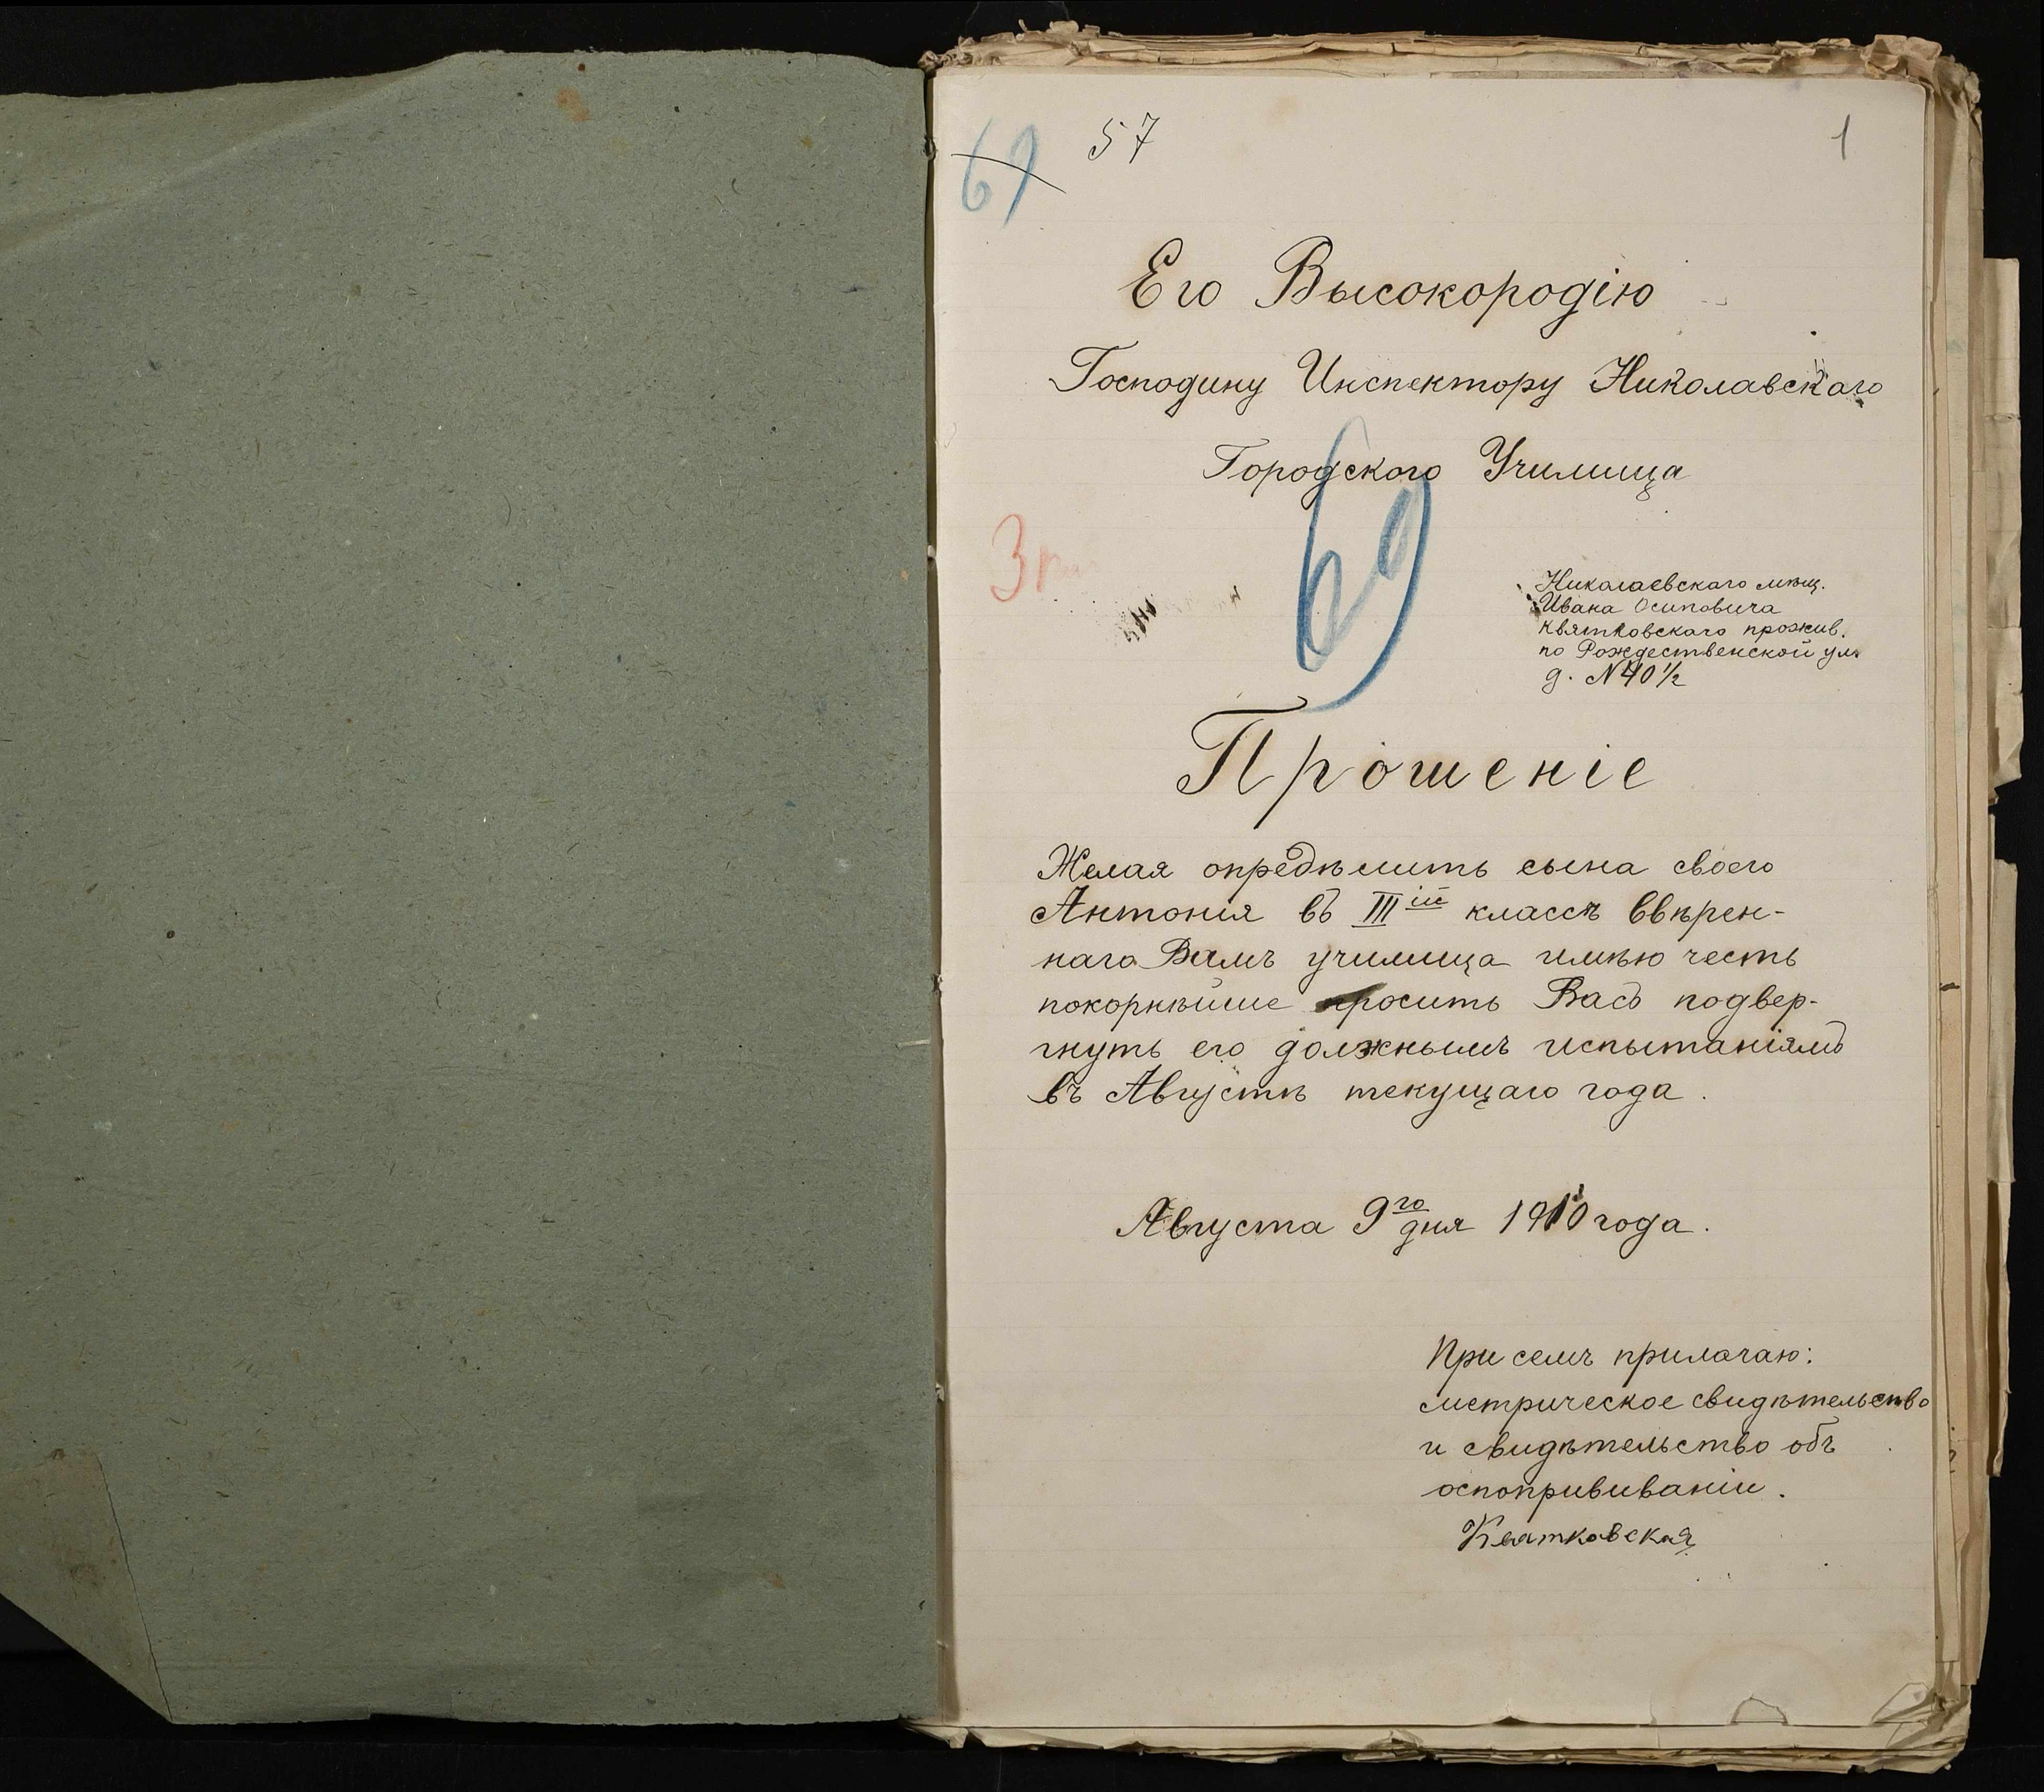 69 57 1
Его Высокородію
Господину Инспектору Николавскаго
Городского Училища
3
69
Николаевскаго мѣщ.
Ивана Осиповича
Квятковскаго прожив.
по Рождественской ул.
д. №40 1/2
Прошеніе
Желая опредѣлить сына своего
Антонія въ III ій классъ ввѣрен-
наго Вамъ училища имѣю честь
покорнѣйше просить Васъ подвер-
гнуть его должнымъ испытаніямъ
въ Августѣ текущаго года.
Августа 9го дня 1910 года.
При семъ прилагаю:
метрическое свидѣтельство
и свидѣтельство объ
оспопрививаніи.
Квятковская